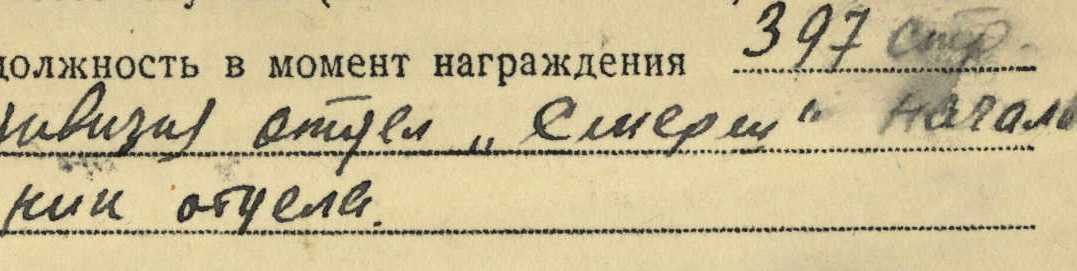 должность в момент награждения 397 стр.
дивизия отдел „Смерш“ началь
ник отдела.